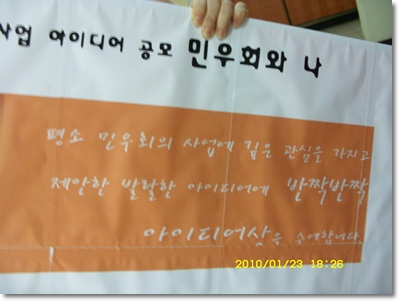 사업 아이디어 공모 민우회와 나
평소 민우회의 사업에 깊은 관심을 가지고
제안한 발랄한 아이디어에 반짝반짝
아이디어상을 수여합니다.
2010/01/23 18:26